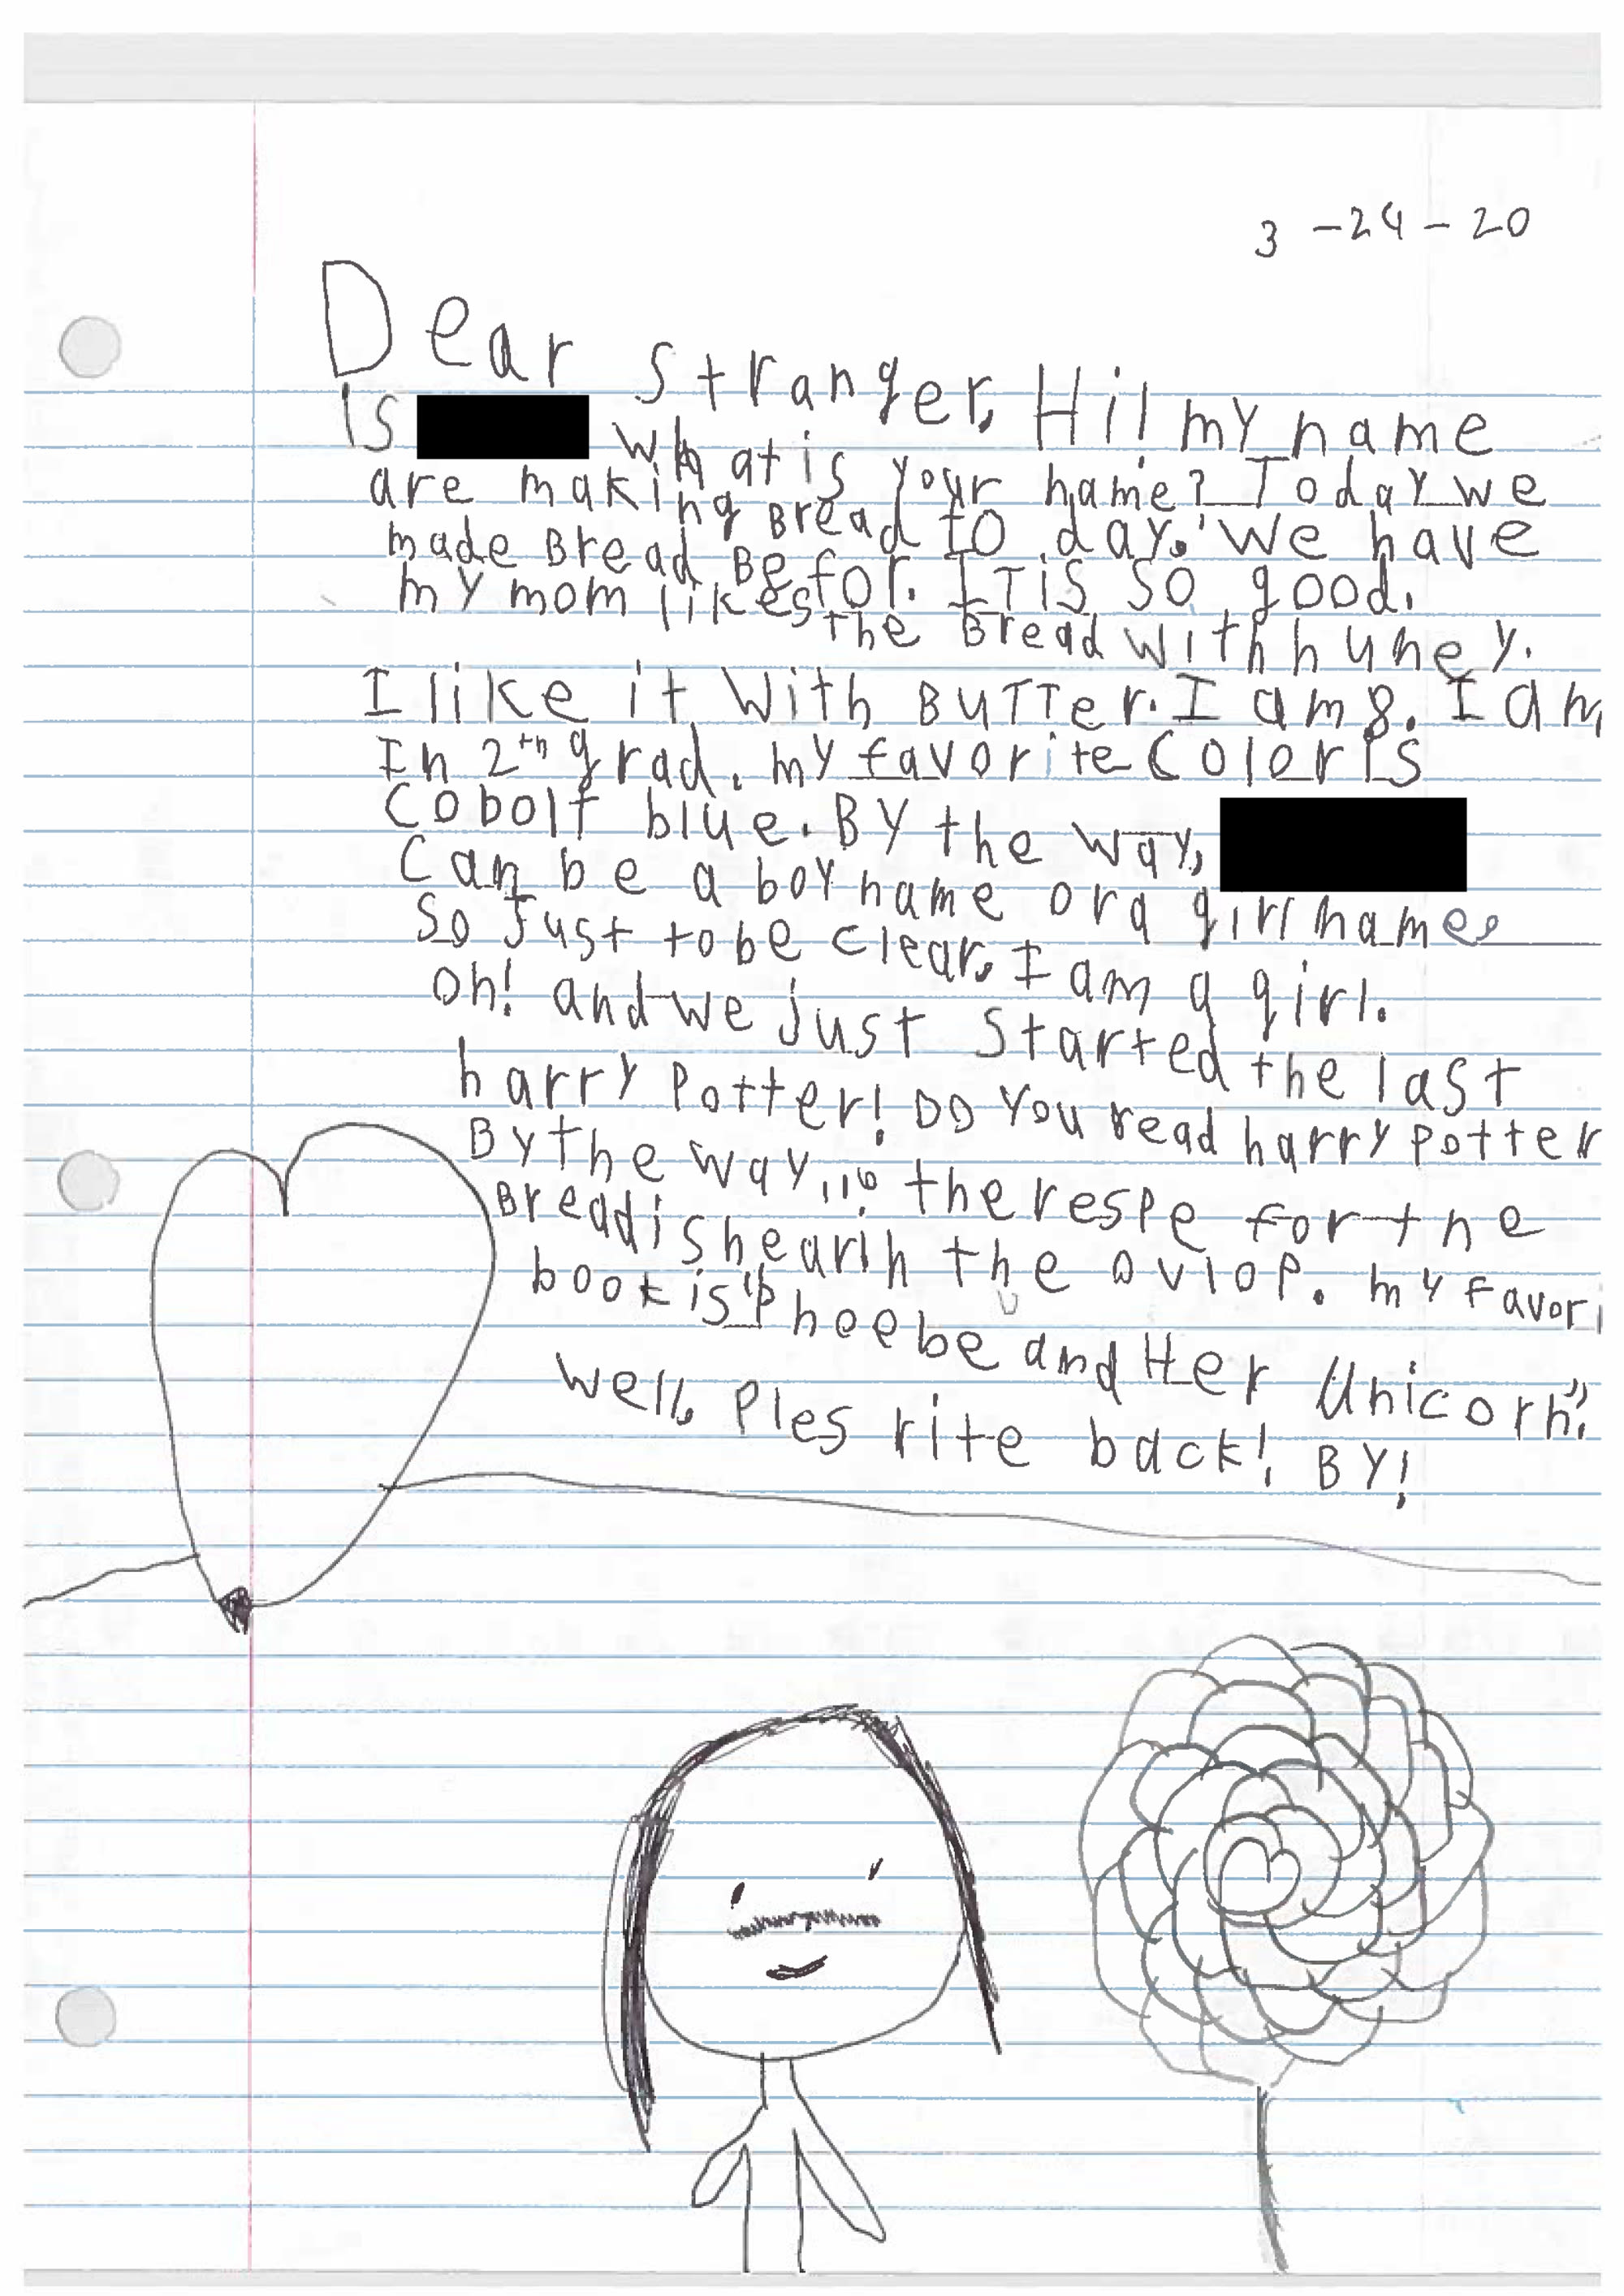 3 - 24 - 20
Dear Stranger, Hi! my name
is what is your name? Today we
are making Bread to day. We have
made Bread Befor. It is so good.
my mom likes the Bread with huney.
I like it with BUTTer. I am 8. I am
In 2th grad. my favorite Color is
Cobolt blue. BY the way,
Can be a boy name or a girl name.
So Just to be clear, I am a girl.
Oh! and we just Started the last
harry Potter! DO You read harry Potter
By the way... the respe for the
Bread is hear in the ovlop. my favori
book is "Phoebe and Her Unicorn".
Well, Ples rite back! BY!